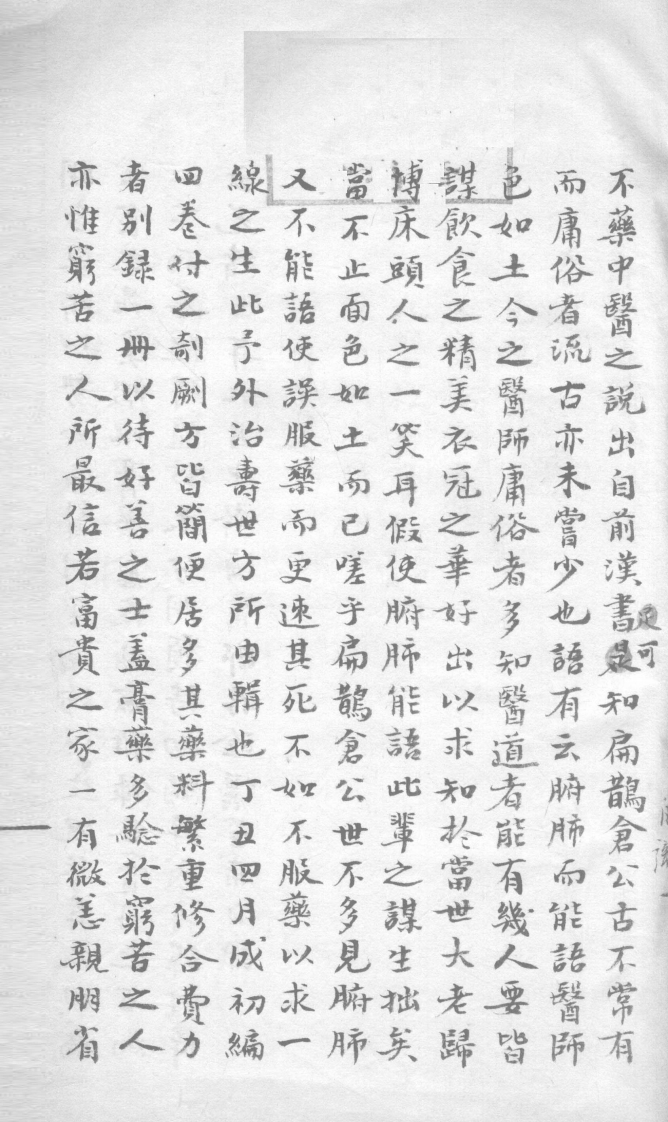 不藥中醫之說出自前漢書是知扁鵲倉公古不常有
足可
而庸俗者流古亦未嘗少也語有云腑肺而能語醫師
色如土今之醫師庸俗者多知醫道者能有幾人要皆
謀飲食之精美衣冠之華好出以求知於當世大老歸
博床頭人之一笑耳假使腑肺能語此輩之謀生拙矣
當不止面色如土而已嗟乎扁鵲倉公世不多見腑肺
又不能語使誤服藥而更速其死不如不服藥以求一
線之生此予外治壽世方所由輯也丁丑四月成初編
四卷付之剞劂方皆簡便居多其藥料繁重修合費力
者別録一冊以待好善之士蓋膏藥多騐於窮苦之人
亦惟窮苦之人所最信若富貴之家一有微恙親朋省